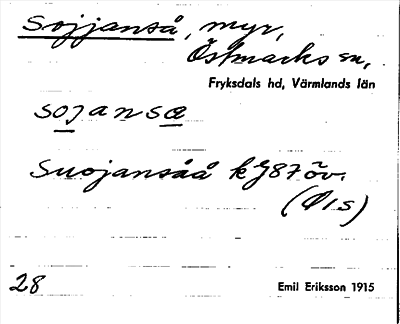 Sojjanså, myr,
Östmarks sn,
Fryksdals hd, Värmlands län
sojansæ
Suojansåå kJ87öv.
(Öls)
28
Emil Eriksson 1915